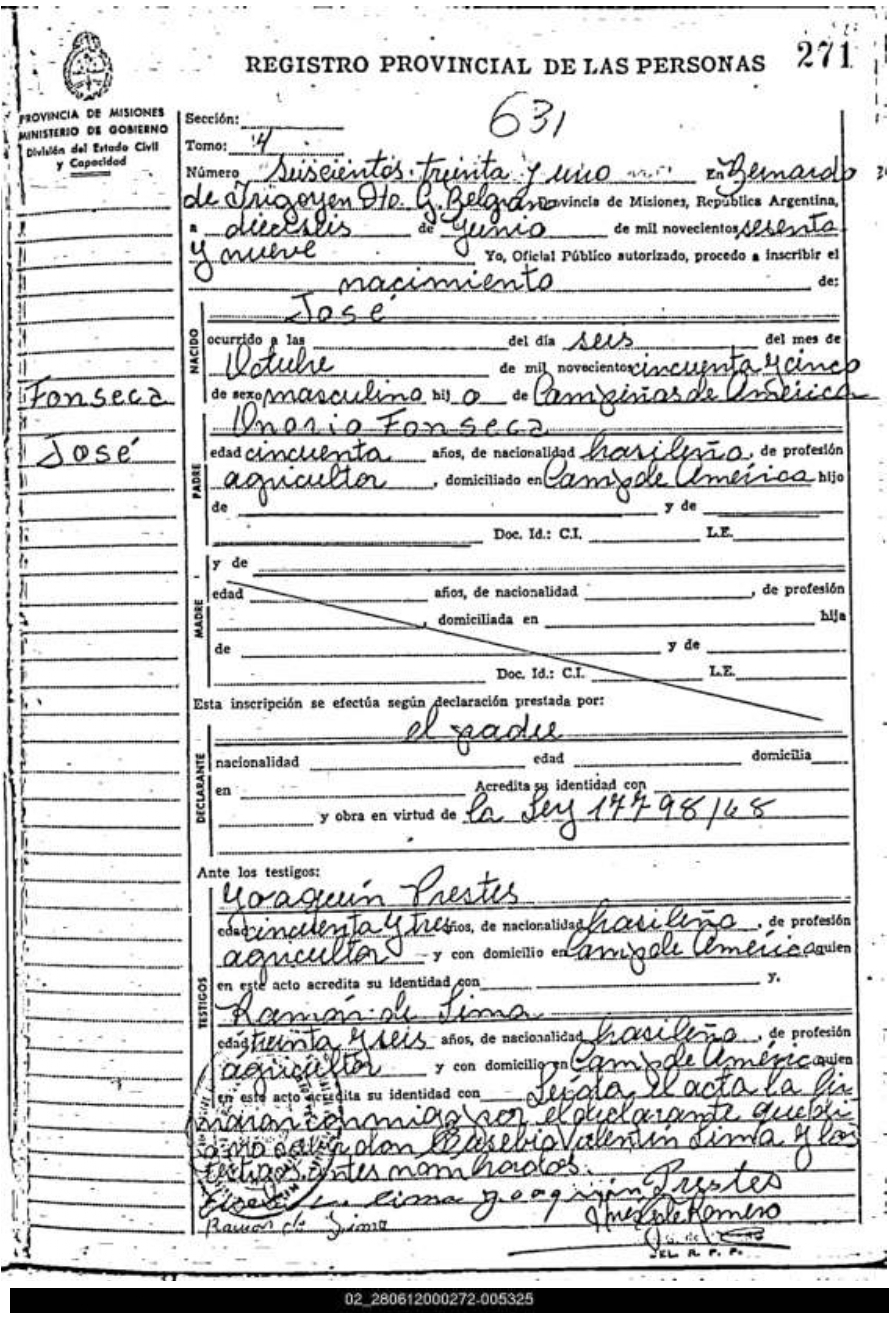 271
REGISTRO PROVINCIAL DE LAS PERSONAS
PROVINCIA DE MISIONES
MINISTERIO DE GOBIERNO
División del Estado Civil
y Capacidad
631
Sección:
Tomo: 4
Número Seiscientos treinta y uno En Bernardo
de Irigoyen Dto. G. Belgrano Provincia de Misiones, República Argentina,
a dieciseis de Junio de mil novecientos sesenta
y nueve Yo, Oficial Público autorizado, procedo a inscribir el
nacimiento de:
José
NACIDO
ocurrido a las del día seis del mes de
Octubre de mil novecientos cincuenta y cinco
de sexo masculino hijo de Campiñas de América
Fonseca
José
PADRE
Onorio Fonseca
edad cincuenta años, de nacionalidad brasileño, de profesión
agricultor, domiciliado en Camp de América hijo
de y de
Doc. Id.: C.I. L.E.
MADRE
y de
edad años, de nacionalidad , de profesión
, domiciliada en hija
de y de
Doc. Id.: C.I. L.E.
Esta inscripción se efectúa según declaración prestada por:
el padre
DECLARANTE
nacionalidad edad domicilia
en Acredita su identidad con
y obra en virtud de la Ley 17798/68
Ante los testigos:
TESTIGOS
Yoaquín Prestes
edad cincuenta y tres años, de nacionalidad brasileño, de profesión
agricultor y con domicilio en Camp de América quien
en este acto acredita su identidad con y.
Ramón de Lima
edad treinta y seis años, de nacionalidad brasileño, de profesión
agricultor y con domicilio en Camp de América quien
en este acto acredita su identidad con Leída el acta la fir
maron conmigo por el declarante que fir
ma no sabe don Eusebio Valentín Lima y los
testigos antes nombrados.
Lima Yoaquín Prestes
Ramon de Lima Romero
DEL R. P. P.
02_280612000272-005325